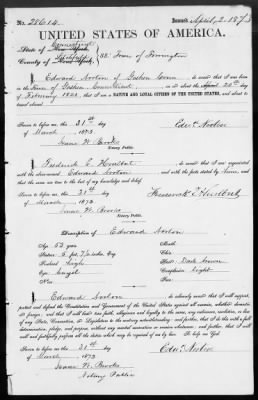 No. 28614. Issued April, 2. 1873
UNITED STATES OF AMERICA.
State of Connecticut
County of Litchfield } SS Town of Torrington
I, Edward Norton of Goshen Conn, do swear that I was born
in the Town of Goshen Connecticut, on or about the 24th day
of February 1820, that I am a NATIVE AND LOYAL CITIZEN OF THE UNITED STATES, and about
to travel abroad.
Sworn to before me, this 31st day
of March 1873 Edw. Norton
Isaac W. Brooks
Notary Public.
I, Frederick E. Hurlbut, do swear that I am acquainted
with the above-named Edward Norton and with the facts stated by him, and
that the same are true to the best of my knowledge and belief.
Sworn to before me, this 31st
day of March Frederick E Hurlbut
1873
Isaac W. Brooks
Notary Public.
Description of Edward Norton
Age: 53 years Mouth:
Stature: 5 feet, 7 1/2 inches, Eng. Chin:
Forehead: high Hair: Dark brown
Eyes: hazel Complexion: light
Nose: Face:
I, Edward Norton, do solemnly swear that I will support,
protect and defend the Constitution and Government of the United States against all enemies, whether domestic
or foreign; and that I will bear true faith, allegiance and loyalty to the same, any ordinance, resolution, or law
of any State, Convention, or Legislature to the contrary notwithstanding; and further, that I do this with a full
determination, pledge, and purpose, without any mental reservation or evasion whatsoever; and further, that I will
well and faithfully perform all the duties which may be required of me by law. So help me God.
Sworn to before me, this 31st
day of March, 1873 Edw. Norton
Isaac W. Brooks
Notary Public